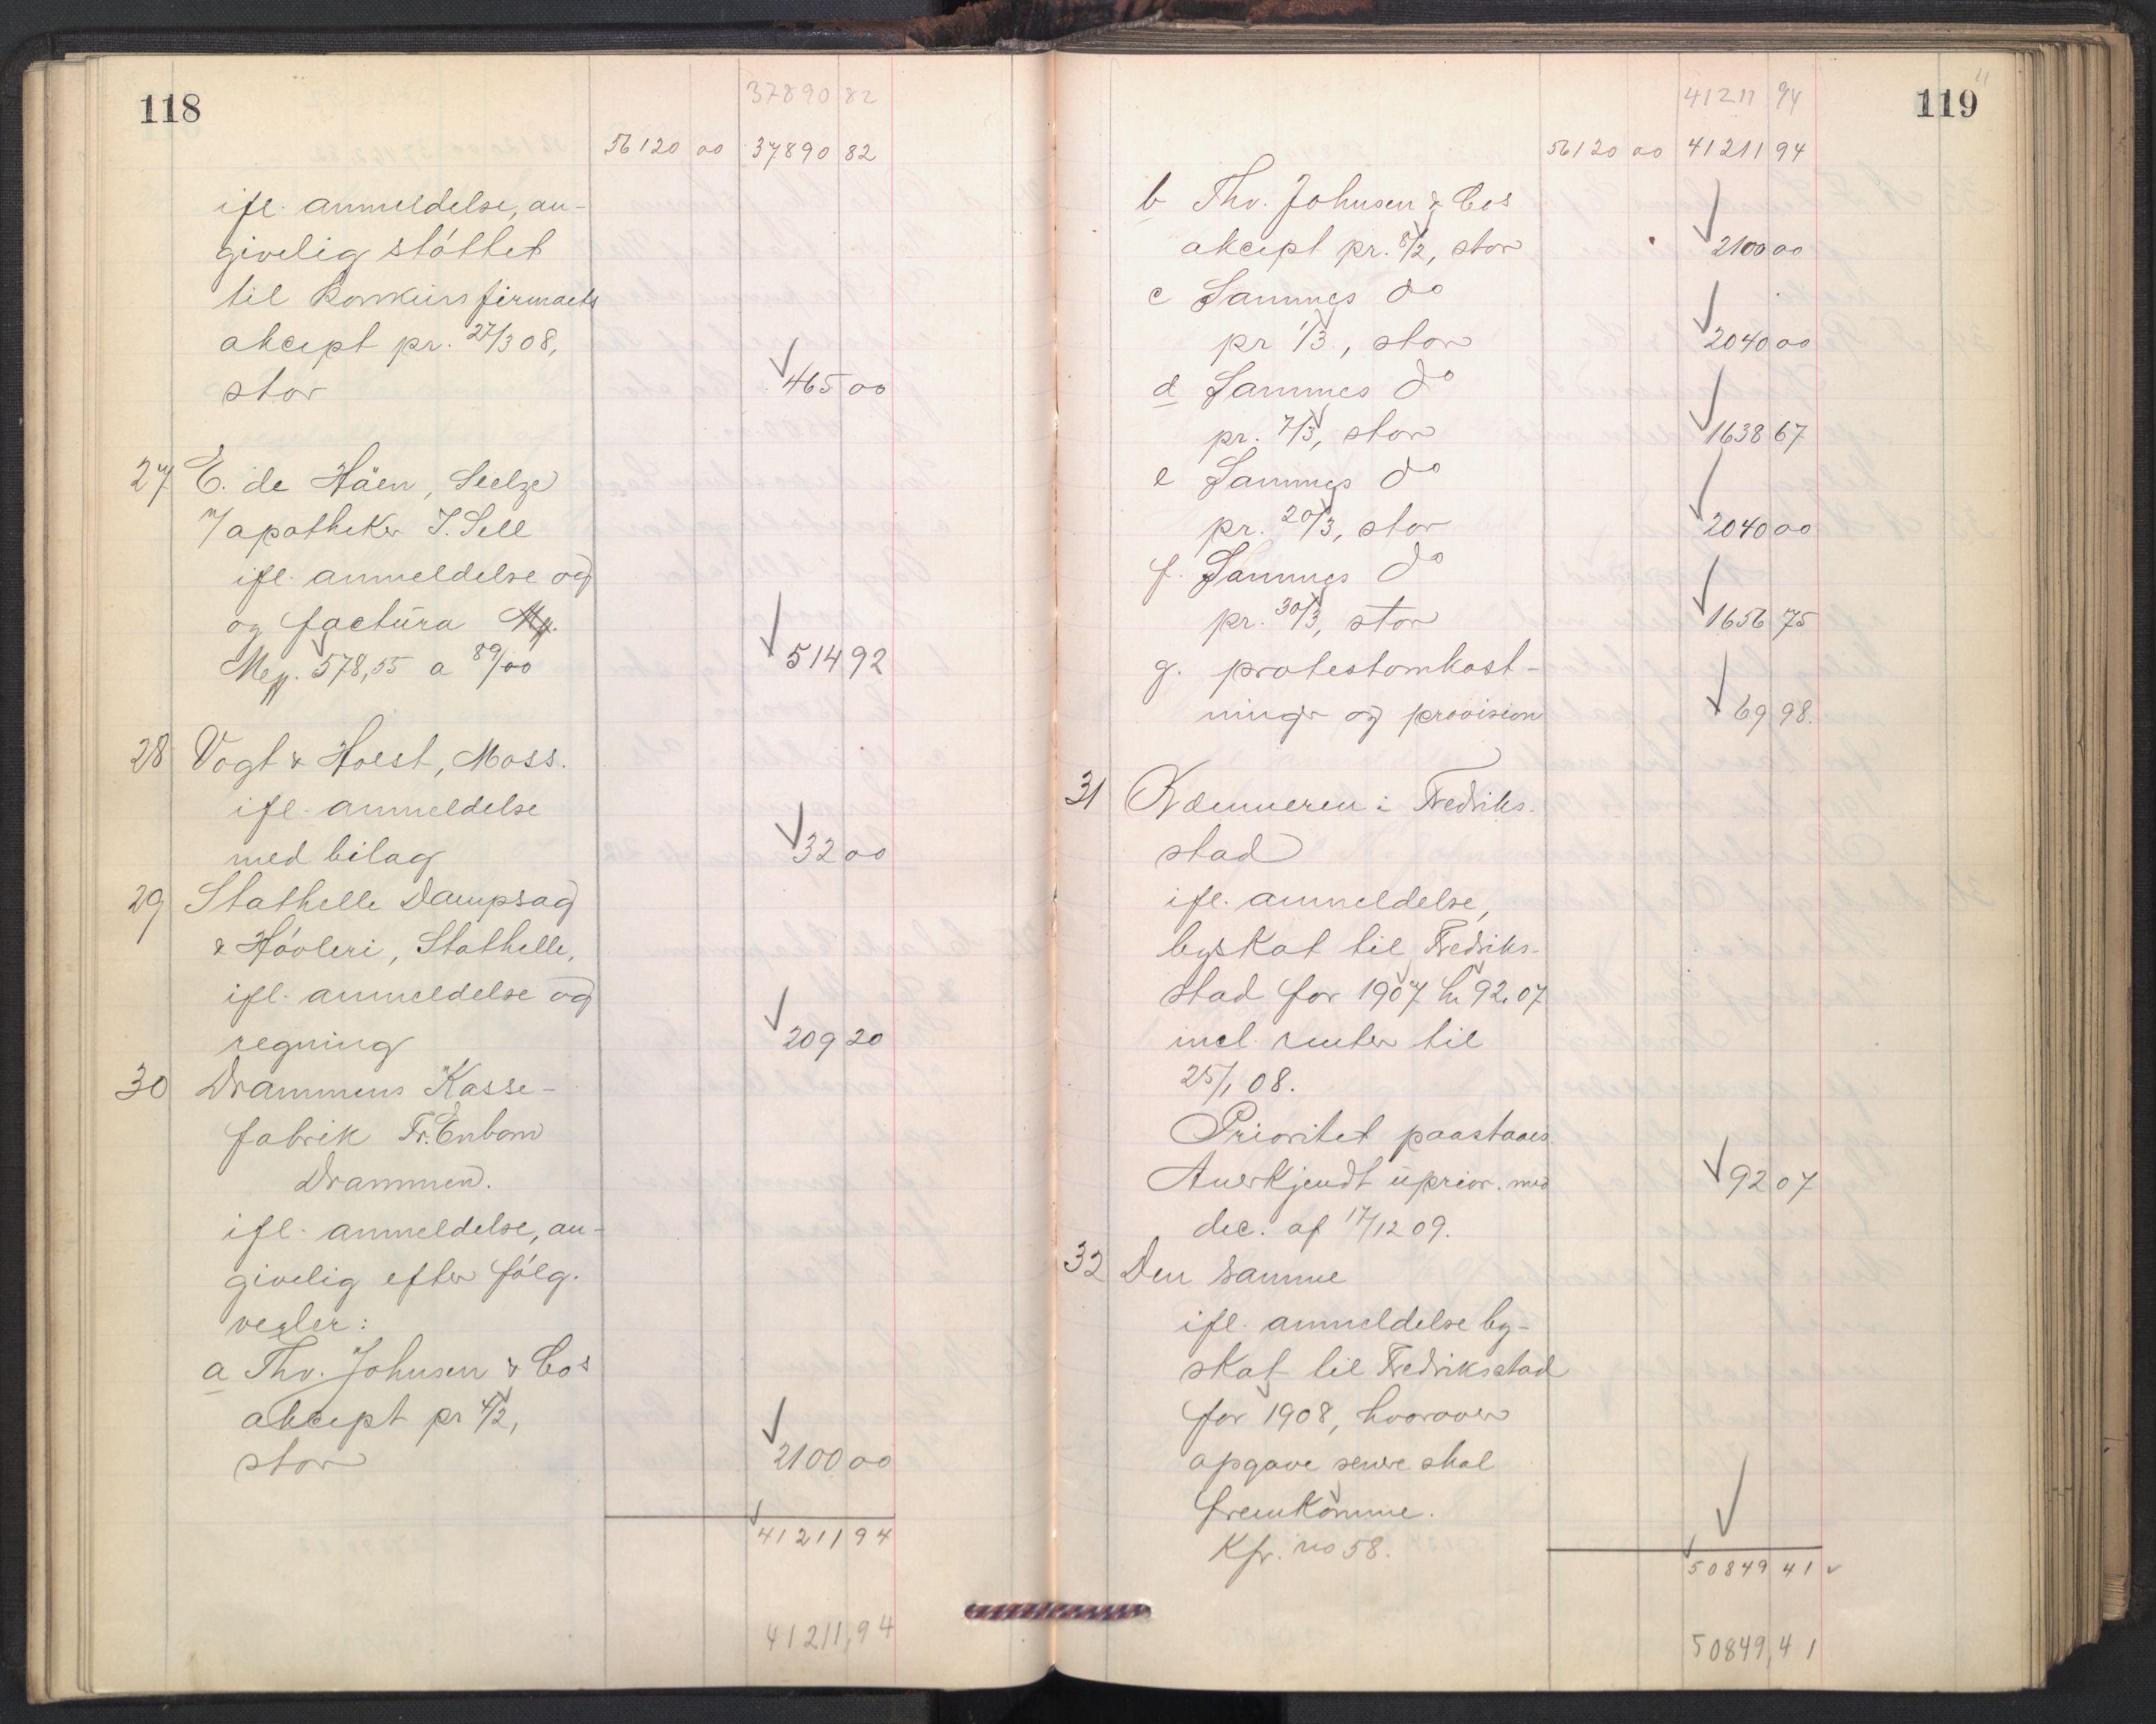 118
37890 82
56120 00 37890 82
ifl. anmeldelse, an-
givelig støttet
til konkursfirmaets
akcept pr. 27/3 08,
stor 465 00
27 E. de Häen, Seelze
m/ apotheker J. Sell
ifl. anmeldelse og
og factura
Mk. 578,55 a 89/00 514 92
28 Vogt & Hoest, Moss.
ifl. anmeldelse
med bilag 32 00
29 Stathelle Dampsag
& Høvleri, Stathelle,
ifl. anmeldelse og
regning 209 20
30 Drammens Kasse-
fabrik Fr. Enbom
Drammen.
ifl. anmeldelse, an-
givelig efter følg.
vexler:
a Thv. Johnsen & Cos
akcept pr 4/2,
stor 2100 00
41211 94
41211,94
119
41211 94
56120 00 41211 94
b Thv. Johnsen & Cos
akcept pr. 8/2, stor 2100 00
c Sammes do
pr 1/3, stor 2040 00
d Sammes do
pr. 7/3, stor 1638 67
e Sammes do
pr. 20/3, stor 2040 00
f. Sammes do
pr. 30/3, stor 1656 75
g. protestomkost-
ninger og provision 69 98.
31 Kæmneren i Fredriks-
stad
ifl. anmeldelse,
byskat til Fredriks-
stad for 1907 kr 92,07
incl. renter til
25/1 08.
Prioritet paastaaes.
Anerkjendt uprior. med 92 07
dec. af 17/12 09.
32 Den samme
ifl. anmeldelse by-
skat til Fredriksstad
for 1908, hvorover
opgave senere skal
fremkomme.
Kfr. no 58.
50849 41
50849,41